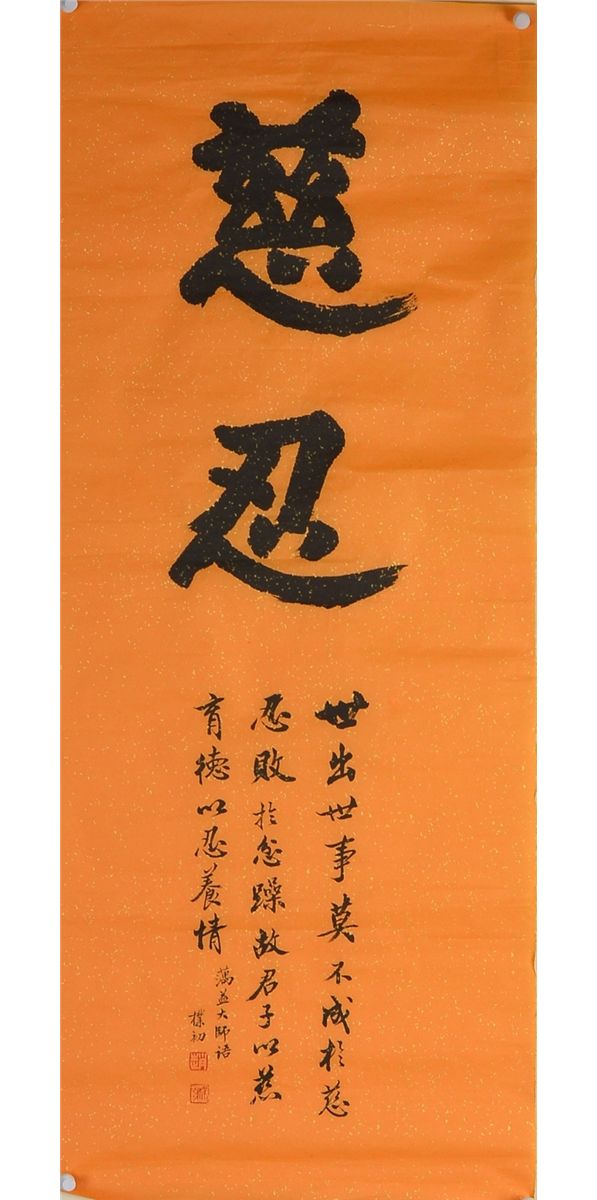 慈
忍
世出世事莫不成於慈
忍敗於忿躁故君子以慈
育德以忍養情
蕅益大師語
樸初